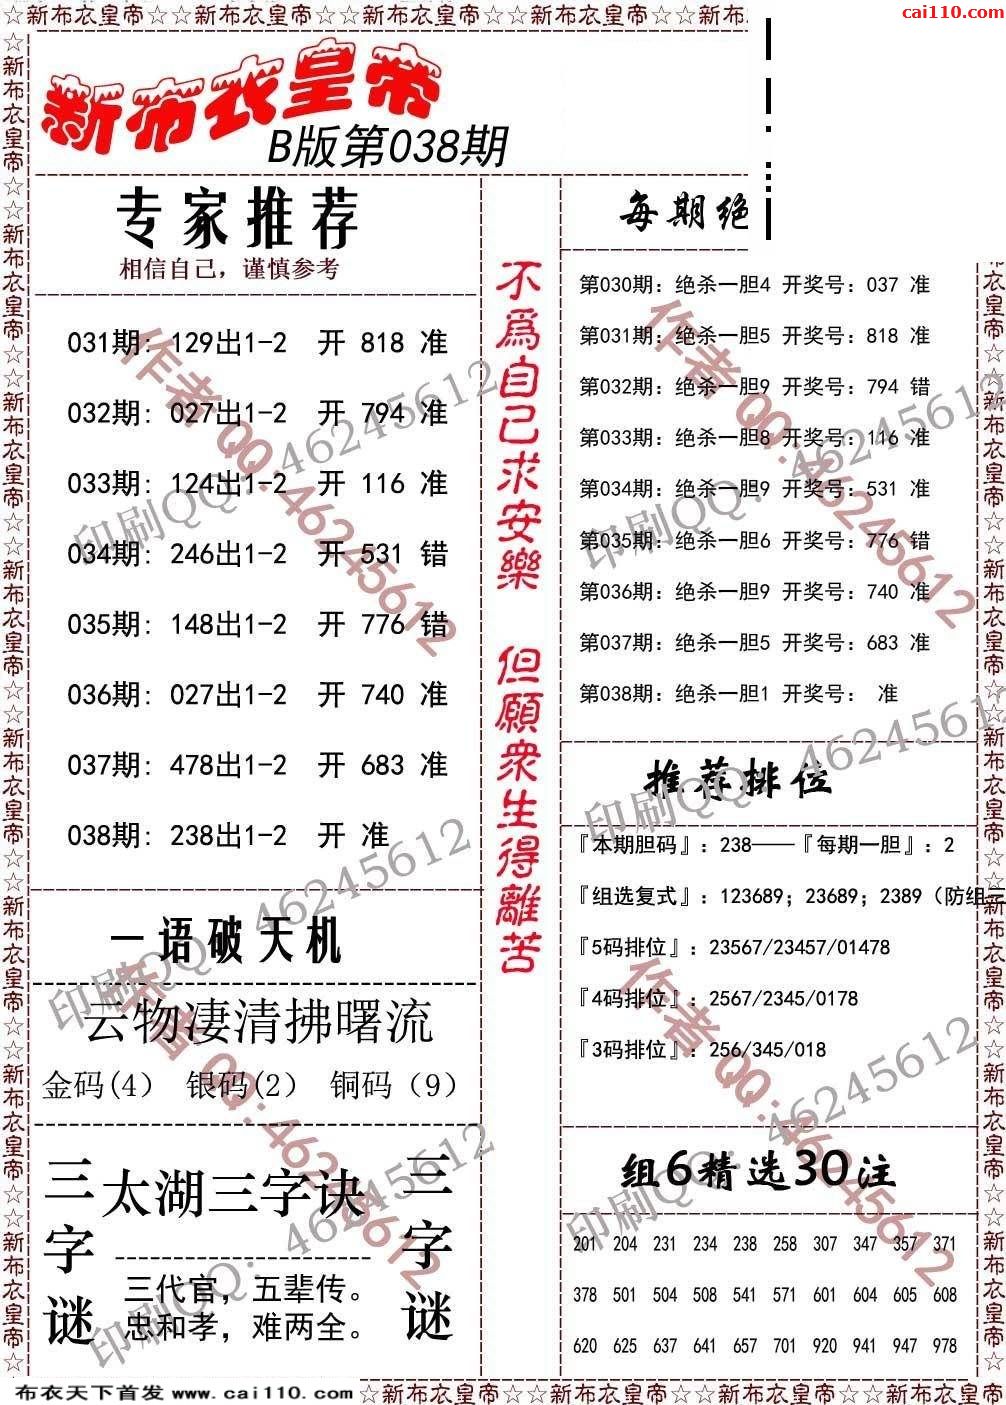 ☆新布衣皇帝☆☆新布衣皇帝☆☆新布衣皇帝☆☆新布衣皇帝☆☆新布
cai110.com
新布衣皇帝
B版第038期
专家推荐
相信自己，谨慎参考
031期: 129出1-2 开 818 准
032期: 027出1-2 开 794 准
033期: 124出1-2 开 116 准
034期: 246出1-2 开 531 错
035期: 148出1-2 开 776 错
036期: 027出1-2 开 740 准
037期: 478出1-2 开 683 准
038期: 238出1-2 开 准
一语破天机
云物凄清拂曙流
金码(4) 银码(2) 铜码（9）
三字谜
太湖三字诀
三代官，五辈传。
忠和孝，难两全。
三字谜
不爲自己求安樂 但願衆生得離苦
每期绝
第030期: 绝杀一胆4 开奖号: 037 准
第031期: 绝杀一胆5 开奖号: 818 准
第032期: 绝杀一胆9 开奖号: 794 错
第033期: 绝杀一胆8 开奖号: 116 准
第034期: 绝杀一胆9 开奖号: 531 准
第035期: 绝杀一胆6 开奖号: 776 错
第036期: 绝杀一胆9 开奖号: 740 准
第037期: 绝杀一胆5 开奖号: 683 准
第038期: 绝杀一胆1 开奖号: 准
推荐排位
『本期胆码』: 238——『每期一胆』: 2
『组选复式』: 123689; 23689; 2389（防组三
『5码排位』: 23567/23457/01478
『4码排位』: 2567/2345/0178
『3码排位』: 256/345/018
组6精选30注
201 204 231 234 238 258 307 347 357 371
378 501 504 508 541 571 601 604 605 608
620 625 637 641 657 701 920 941 947 978
作者 QQ:46245612
印刷QQ: 46245612
布衣天下首发 www.cai110.com
☆新布衣皇帝☆☆新布衣皇帝☆☆新布衣皇帝☆☆新布衣皇帝☆